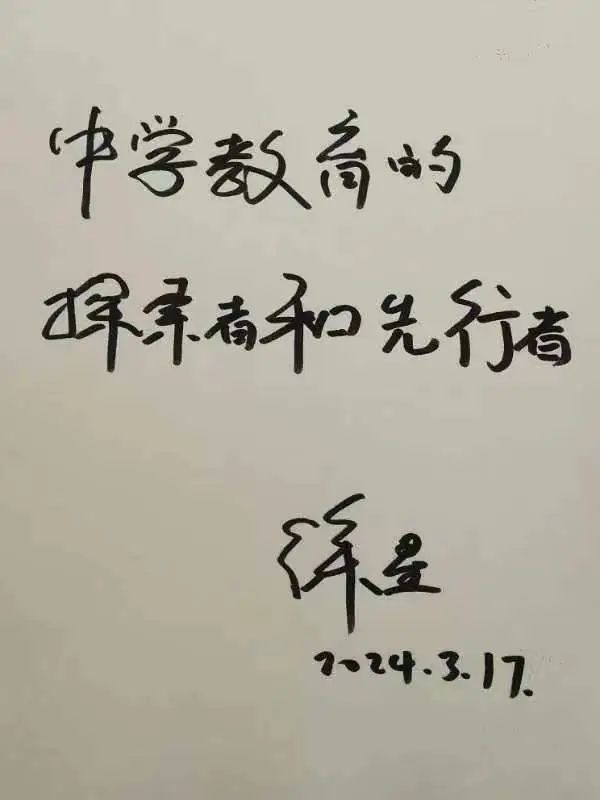 中学教育的
探索者和先行者
徐星
2024.3.17.